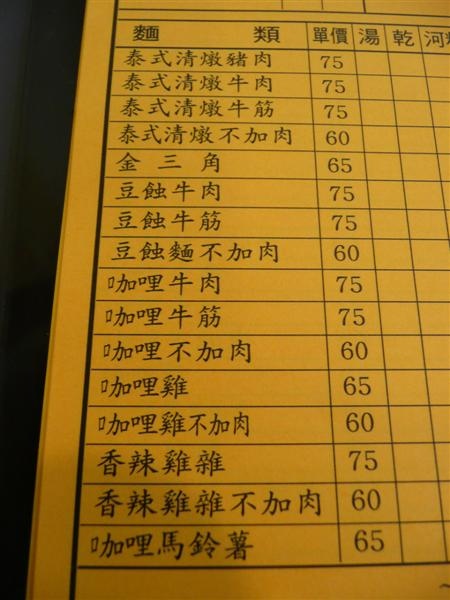 麵 類 單價 湯 乾 河粉
泰式清燉豬肉 75
泰式清燉牛肉 75
泰式清燉牛筋 75
泰式清燉不加肉 60
金三角 65
豆蝕牛肉 75
豆蝕牛筋 75
豆蝕麵不加肉 60
咖哩牛肉 75
咖哩牛筋 75
咖哩不加肉 60
咖哩雞 65
咖哩雞不加肉 60
香辣雞雜 75
香辣雞雜不加肉 60
咖哩馬鈴薯 65